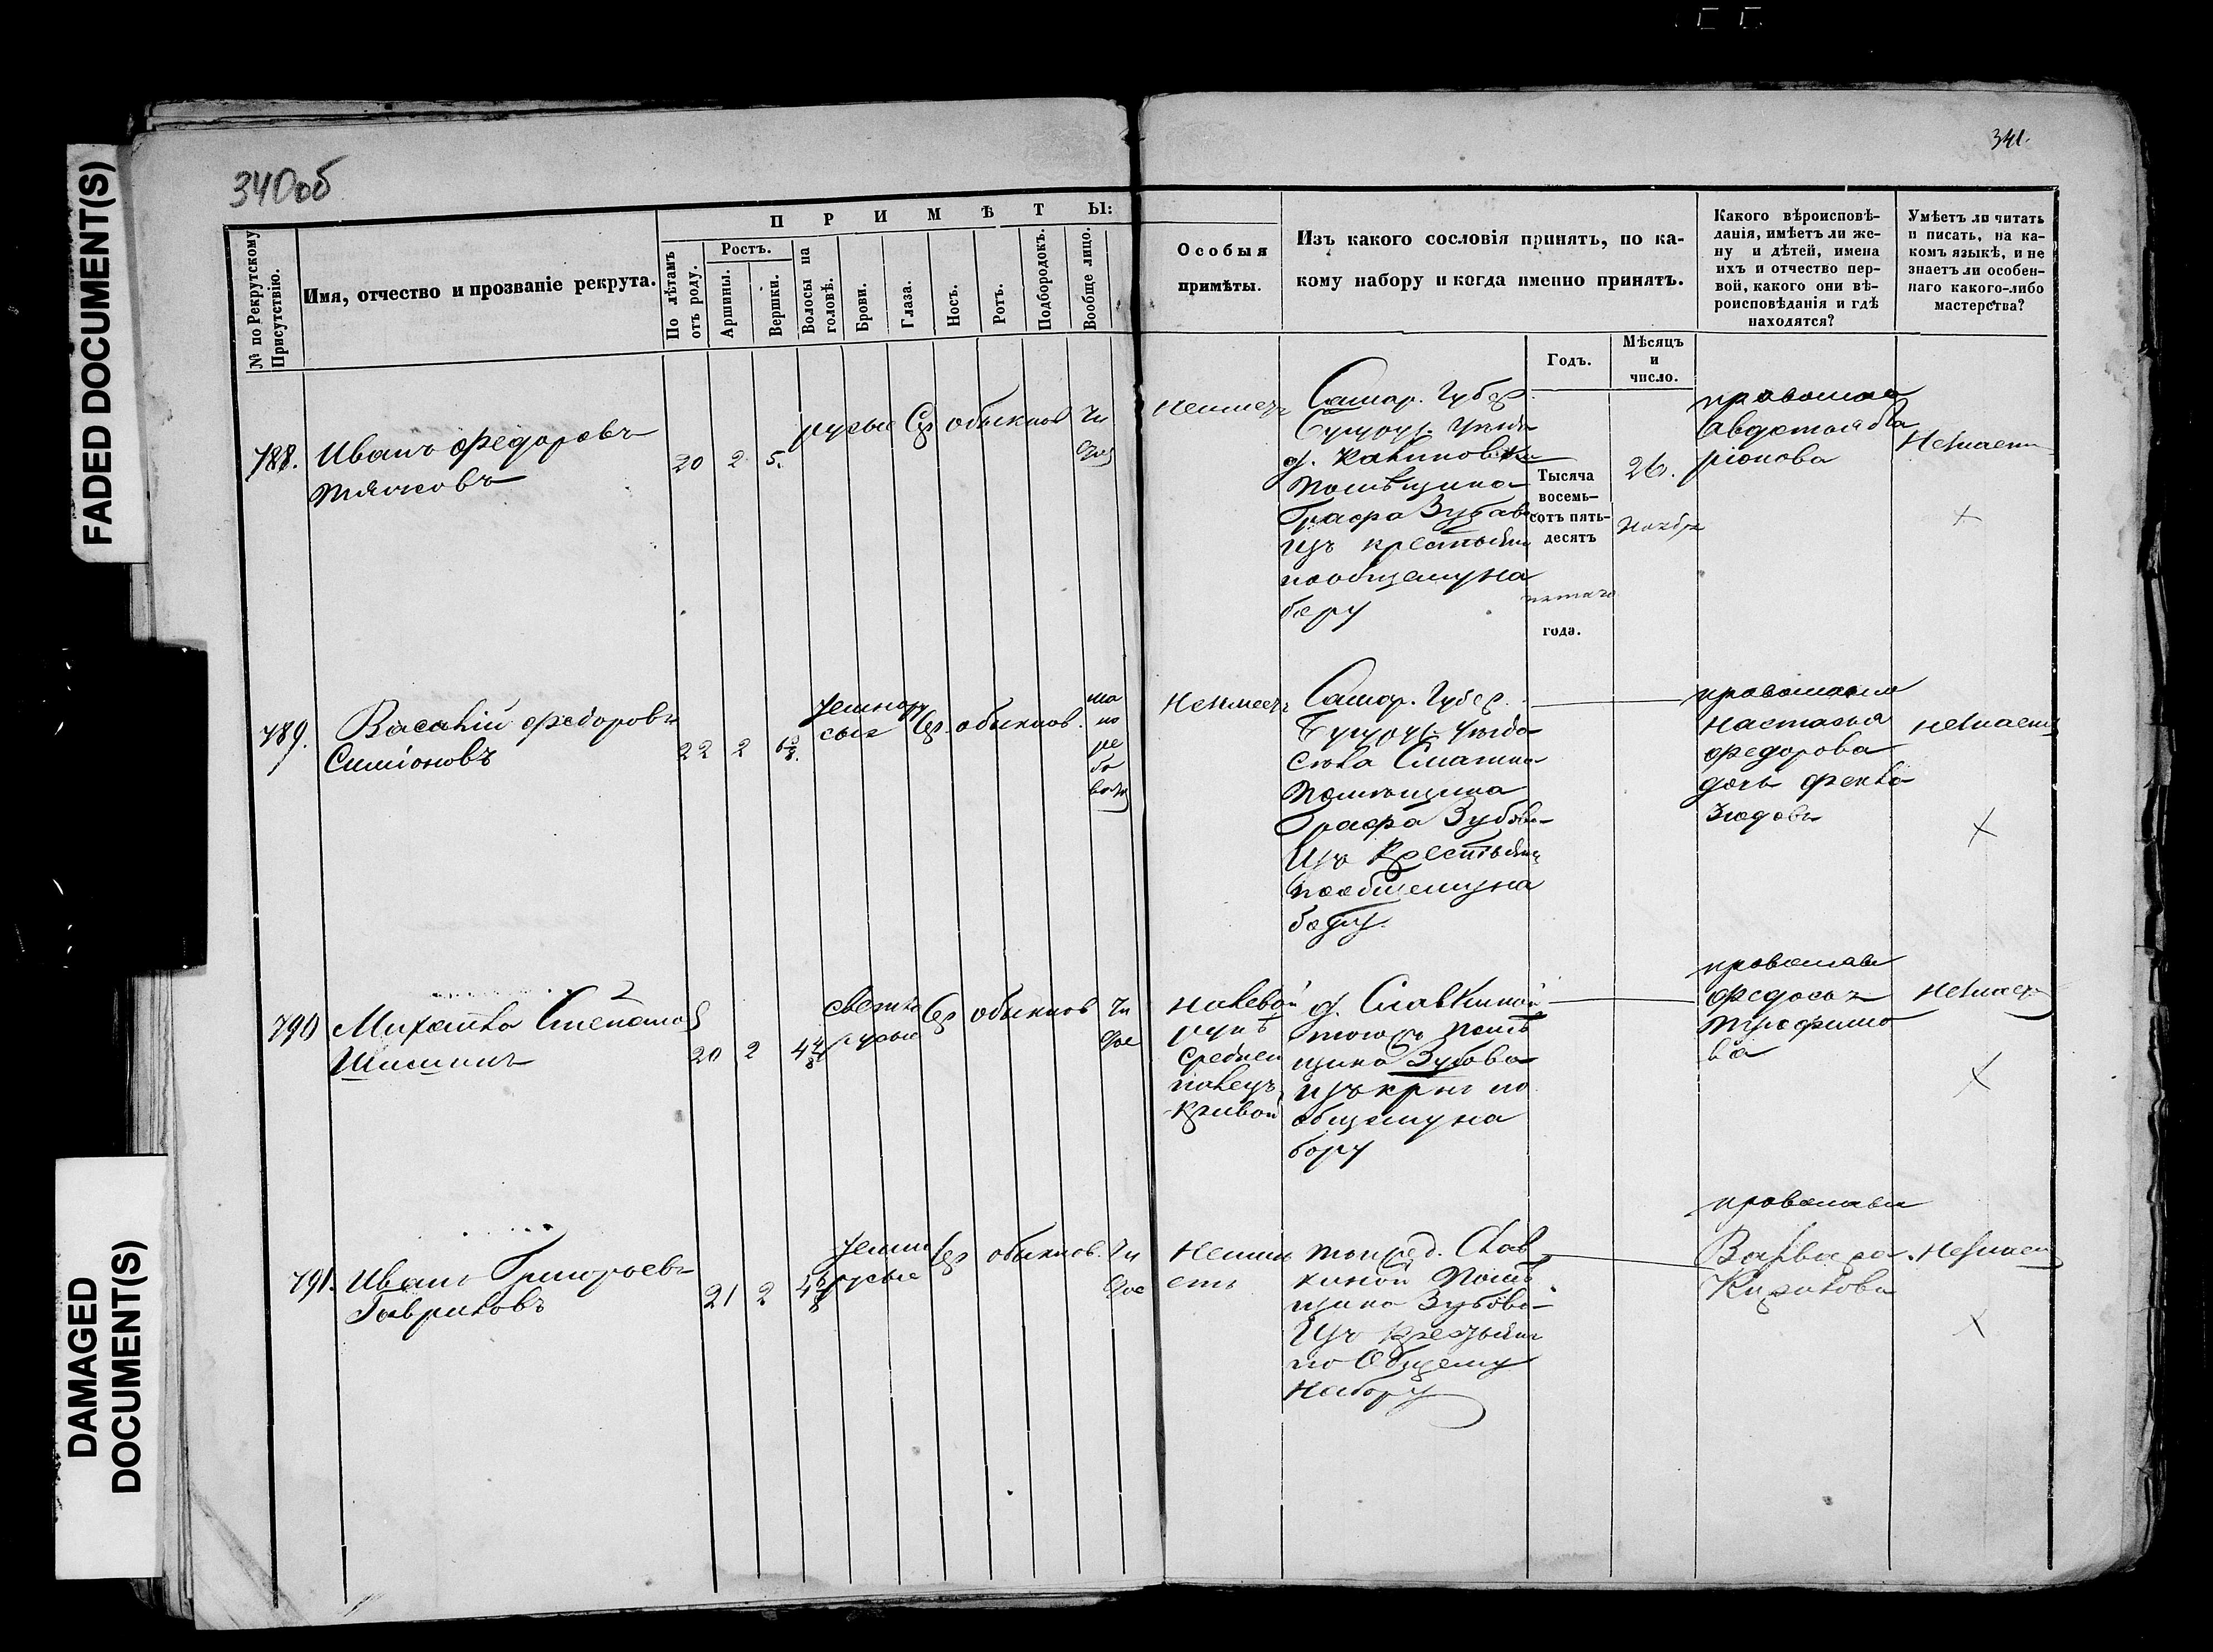 FADED DOCUMENT(S)
DAMAGED
DOCUMENT(S)
340об
341.
П Р И М Ѣ Т Ы:
№ по Рекрутскому
Присутствію.
Имя, отчество и прозваніе рекрута.
По лѣтамъ
отъ роду.
Ростъ.
Аршины.
Вершки.
Волосы на
головѣ.
Брови.
Глаза.
Носъ.
Ротъ.
Подбородокъ.
Вообще лицо.
Особыя
примѣты.
Изъ какого сословія принятъ, по ка-
кому набору и когда именно принятъ.
Годъ.
Мѣсяцъ
и
число.
Какого вѣроисповѣ-
данія, имѣетъ ли же-
ну и дѣтей, имена
ихъ и отчество пер-
вой, какого они вѣ-
роисповѣданія и гдѣ
находятся?
Умѣетъ ли читать
и писать, на ка-
комъ языкѣ, и не
знаетъ ли особен-
наго какого-либо
мастерства?
788.
Иванъ Федоровъ
20
2
5.
русые
Сер
обыкнов
чи
Неимеет
Самар. Губер.
Бугурус. Уезда
д. Калиновки
Помѣщика
Графа Зубова
изъ крестьян
по общему на
бору
Тысяча
восемь-
сотъ пять-
десятъ
пятаго
года.
26.
Ноябр
православ
Незнает
789.
Василій Федоровъ
Симіоновъ
22
2
темнору
сые
Сер.
обыкнов.
Неимеет
Самар. Губер.
Бугурус. Уезда
Села
Помещика
Графа Зубова
Изъ Крестьян
по общему на
бору.
православн
Настасья
Федорова
дочь
незнает
790
Михайла Степанов
Шишкинъ
20
2
4 4/8
светло
русые
Сер
обыкнов
чи
на левой
рукѣ
средней
палецъ
кривой
д. Славкиной
тогожъ помѣ
щика Зубова
изъ крес по
общему на
бору
православ
Федосья
Трофимо
ва
Незнает
791.
Иванъ Григорьевъ
Гавриловъ
21
2
темно
русые
Сер
обыкнов.
чи
Неим
етъ
д. Слав
киной Помѣ
щика Зубова
Изъ Крестьян
по Общему
Набору
православн
Варвара
Кирилова
Незнает